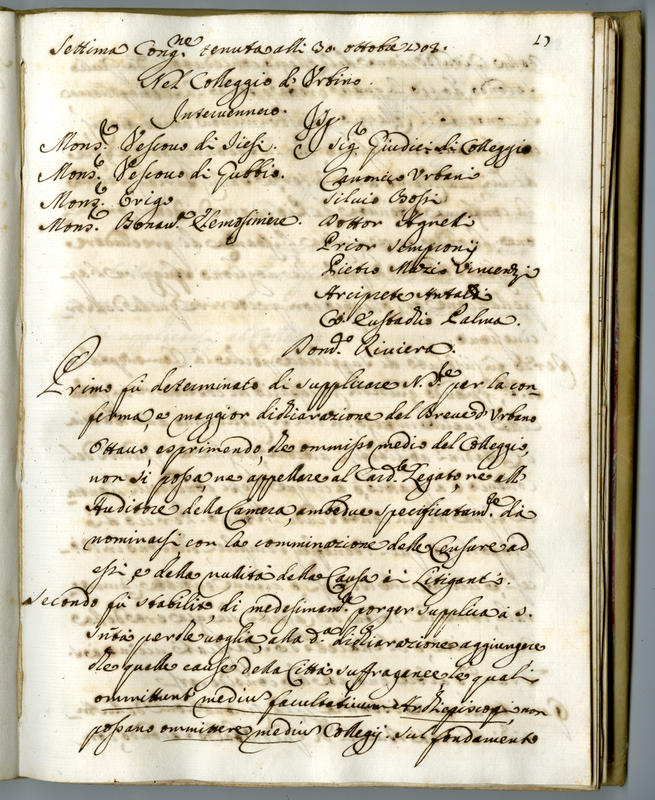 Settima Cong.ne tenuta alli 30 ottobre 1703.
Nel Colleggio d'Urbino.
Intervennero.
Mons.r Vescovo di Jiesi.
Mons.r Vescovo di Gubbio.
Mons.r Origo
Mons.r Bonav.a Elemosiniere.
Sig.ri Giudici di Colleggio
Canonico Urbani
Silvio Bossi
Dottor Agneli
Prior Sempronij
Pietro Mazio Vincenzi
Arciprete Antaldi
Eustachio Palma.
Bond.o Riviera.
Primo fù determinato di supplicare N. S.re per la con=
ferma, e maggior dichiarazione del Breve d'Urbano
Ottavo esprimendo, che ommisso medio del Colleggio,
non si possa, ne appellare al Card.le Legato, ne all'
Auditore della Camera, ambedue specificatam.te da
nominarsi con la comminazione delle Censure ad
essi e della nullità della Causa à i Litiganti.
Secondo fù stabilito, di medesimam.te porger supplica à S.
San.tà perche voglia, alla d.a dichiarazione aggiungere
che quelle cause della Città suffraganee le quali
ommittunt medium facultativum Archiepiscopi, non
possano ommittere medium Collegij. Sul fondamento